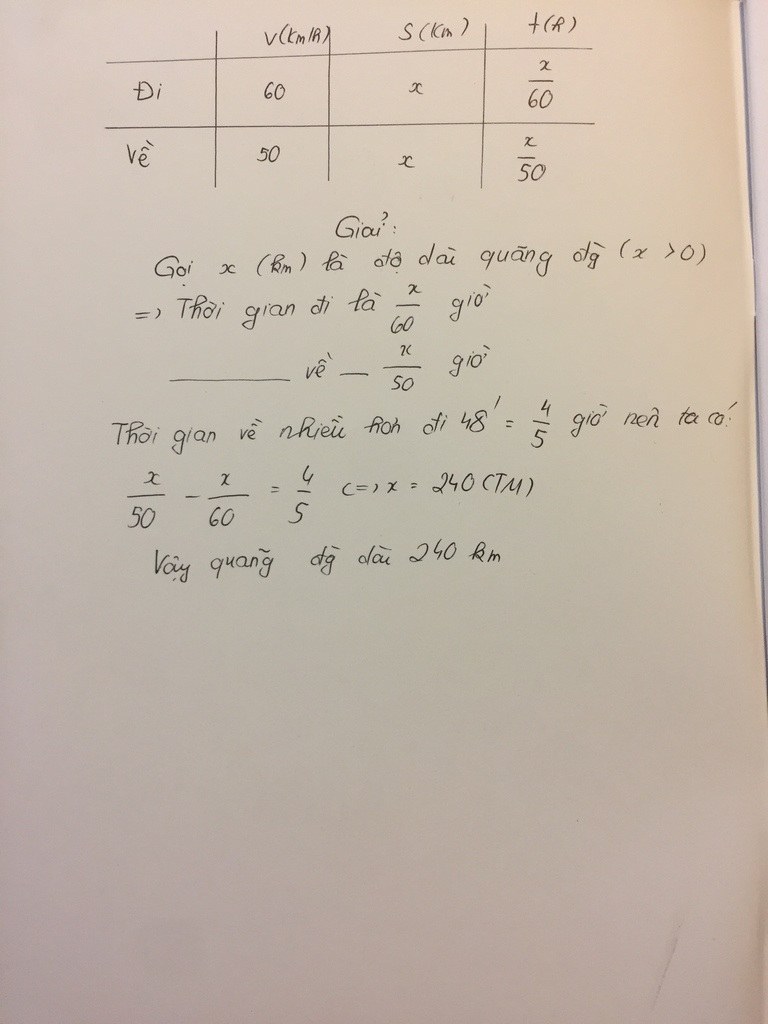 v(km/h) S(km) t(h)
Đi 60 x x/60
Về 50 x x/50
Giải:
Gọi x (km) là độ dài quãng đg (x > 0)
=> Thời gian đi là x/60 giờ
_______ về _ x/50 giờ
Thời gian về nhiều hơn đi 48' = 4/5 giờ nên ta có:
x/50 - x/60 = 4/5 <=> x = 240 (TM)
Vậy quãng đg dài 240 km